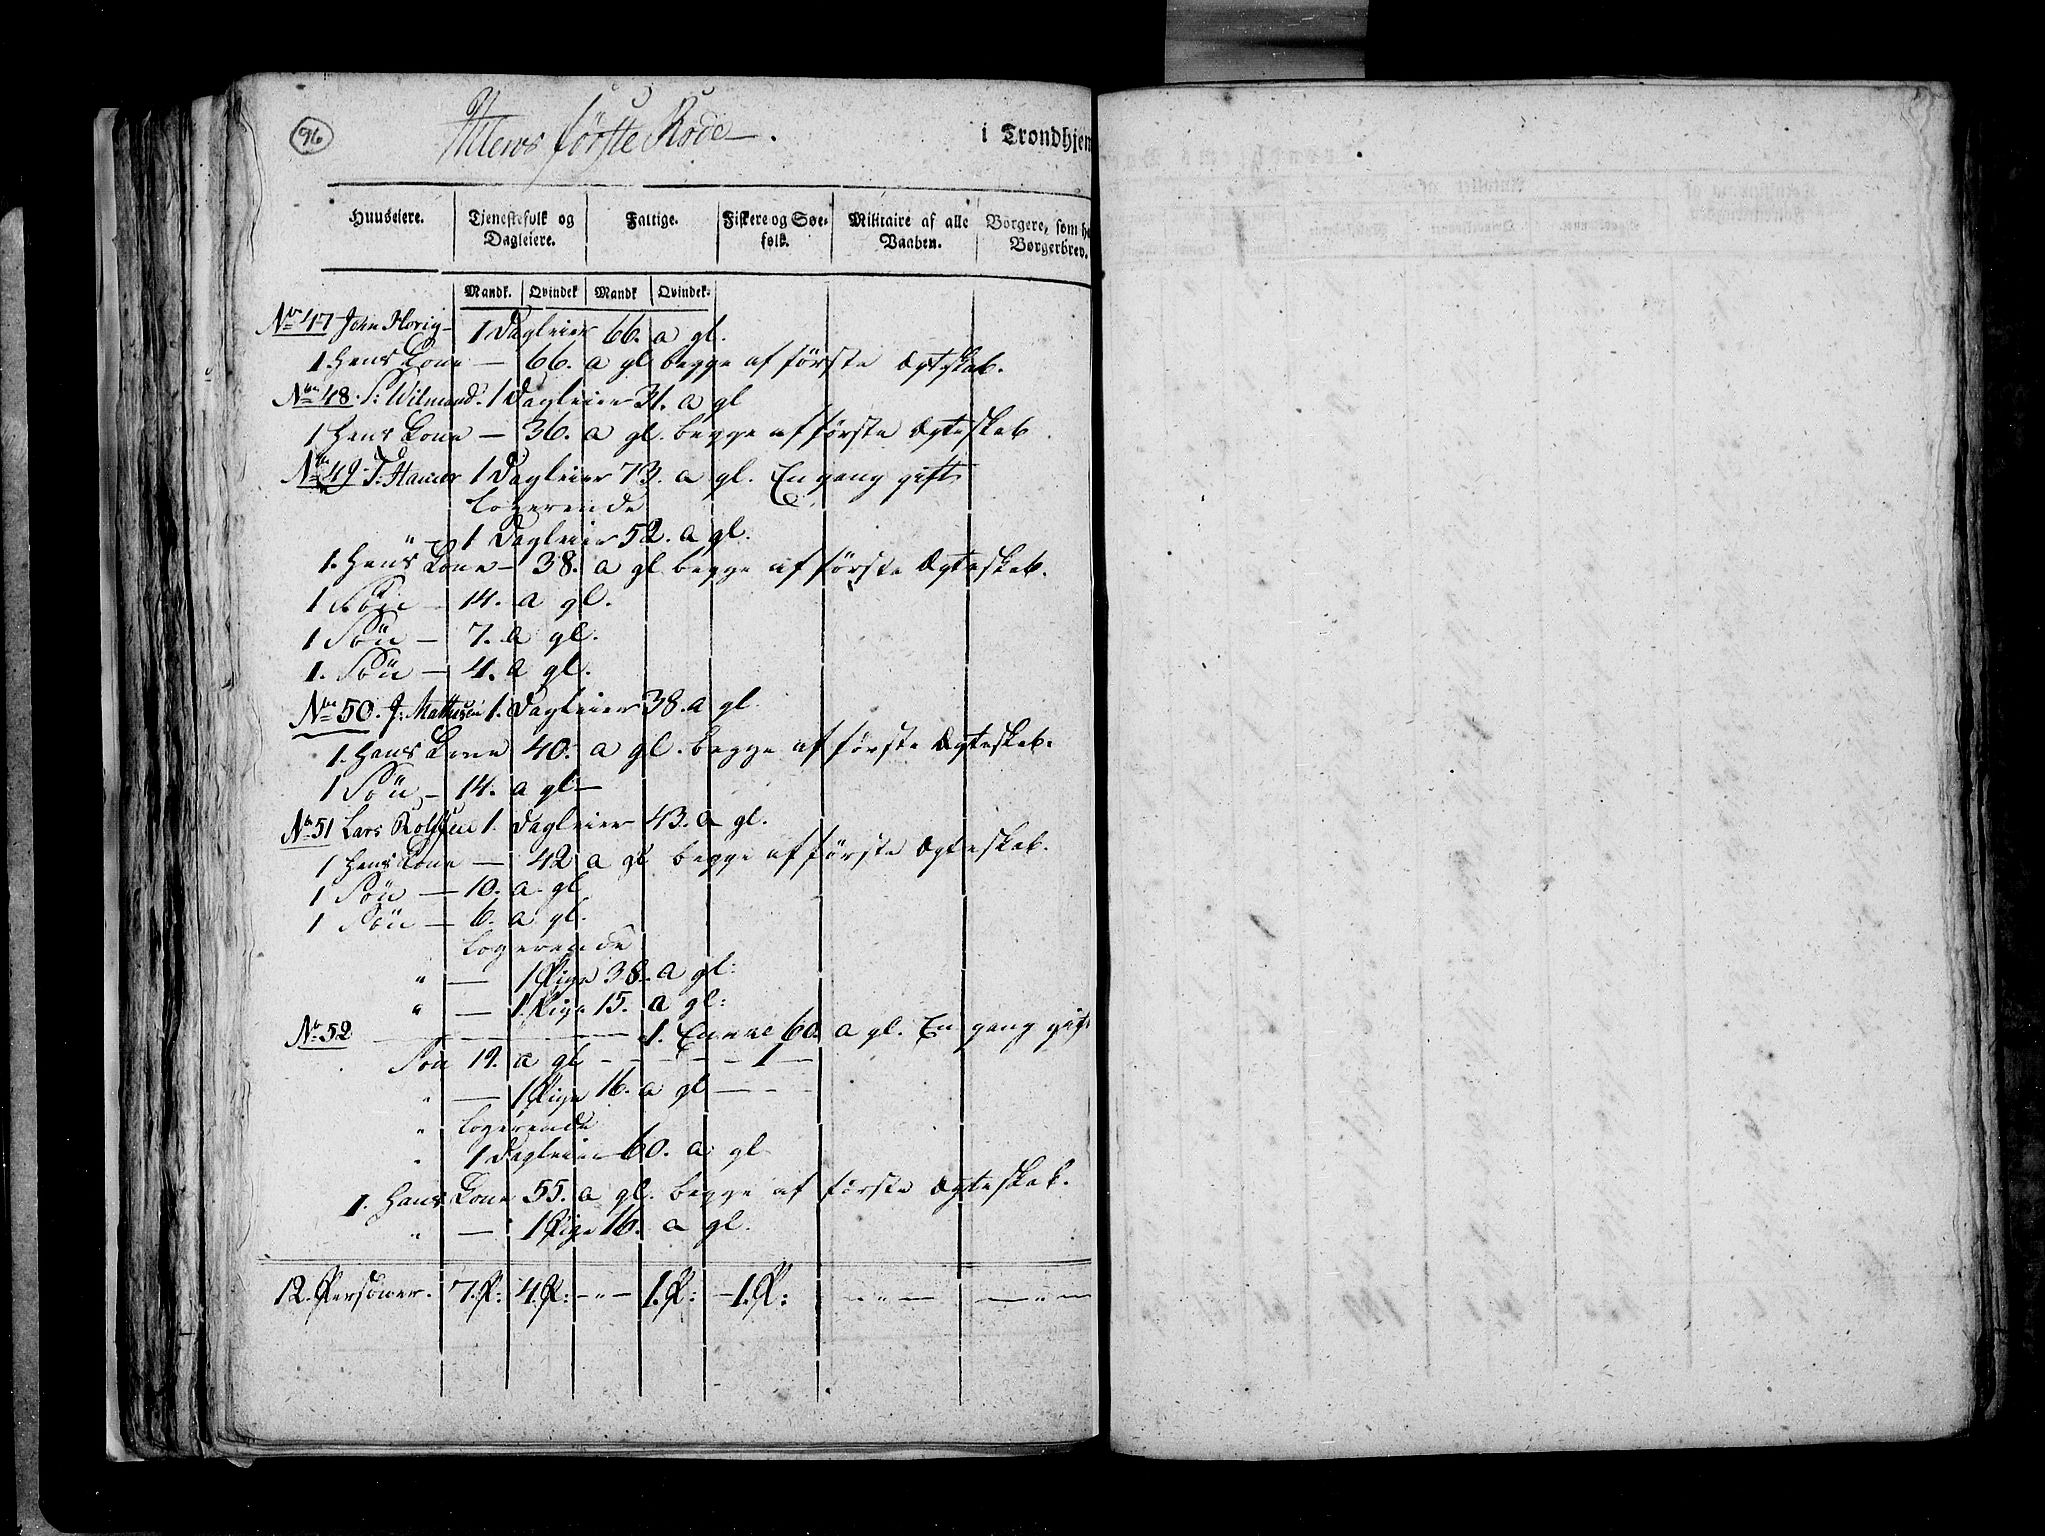 96
Ihlens förste Rode.
i Trondhjem
Huuseiere.
Tjenestefolk og Dagleiere.
Fattige.
Fiskere og Søe-folk.
Militaire af alle Vaaben.
Borgere, som ha
Borgerbrev.
Mandk. Qvindek Mandk Qvindek.
No 47 John Horig 1 Dagleier 66. a gl.
1 Hans Kone — 66. a gl begge af förste Ægteskab.
No 48. Wilmand. 1 Dagleier 31. a gl
1 Hans Kone — 36. a gl. begge af förste Ægteskab.
No 49 Hamer 1 Dagleier 73. a gl. En gang gift
Logerende
" — 1 Dagleier 52. a gl.
1. Hans Kone — 38. a gl begge af förste Ægteskab.
1 Sön — 14. a gl.
1 Sön — 7. a gl.
1. Sön — 4. a gl.
No 50. J: Mathisen 1. Dagleier 38. a gl.
1. Hans Kone 40. a gl. begge af förste Ægteskab.
1 Sön — 14. a gl —
No 51 Lars Rolfsen 1. Dagleier 43. a gl.
1 Hans Kone — 42 a gl begge af förste Ægteskab.
1 Sön — 10. a gl
1 Sön — 6. a gl.
Logerende
" — 1 Pige 38. a gl:
" — 1. Pige 15. a gl:
No 52 — 1. Enke 60. a gl. En gang gift
Sön 19. a gl — 1 —
" — 1 Pige 16. a gl —
" Logerende
" 1 Dagleier 60. a gl
1. Hans Kone 55. a gl. begge af förste Ægteskab.
" — 1 Pige 16. a gl.
12. Personer. 7. P: 4. P: — " — 1. P: — 1. P: — " — — " —